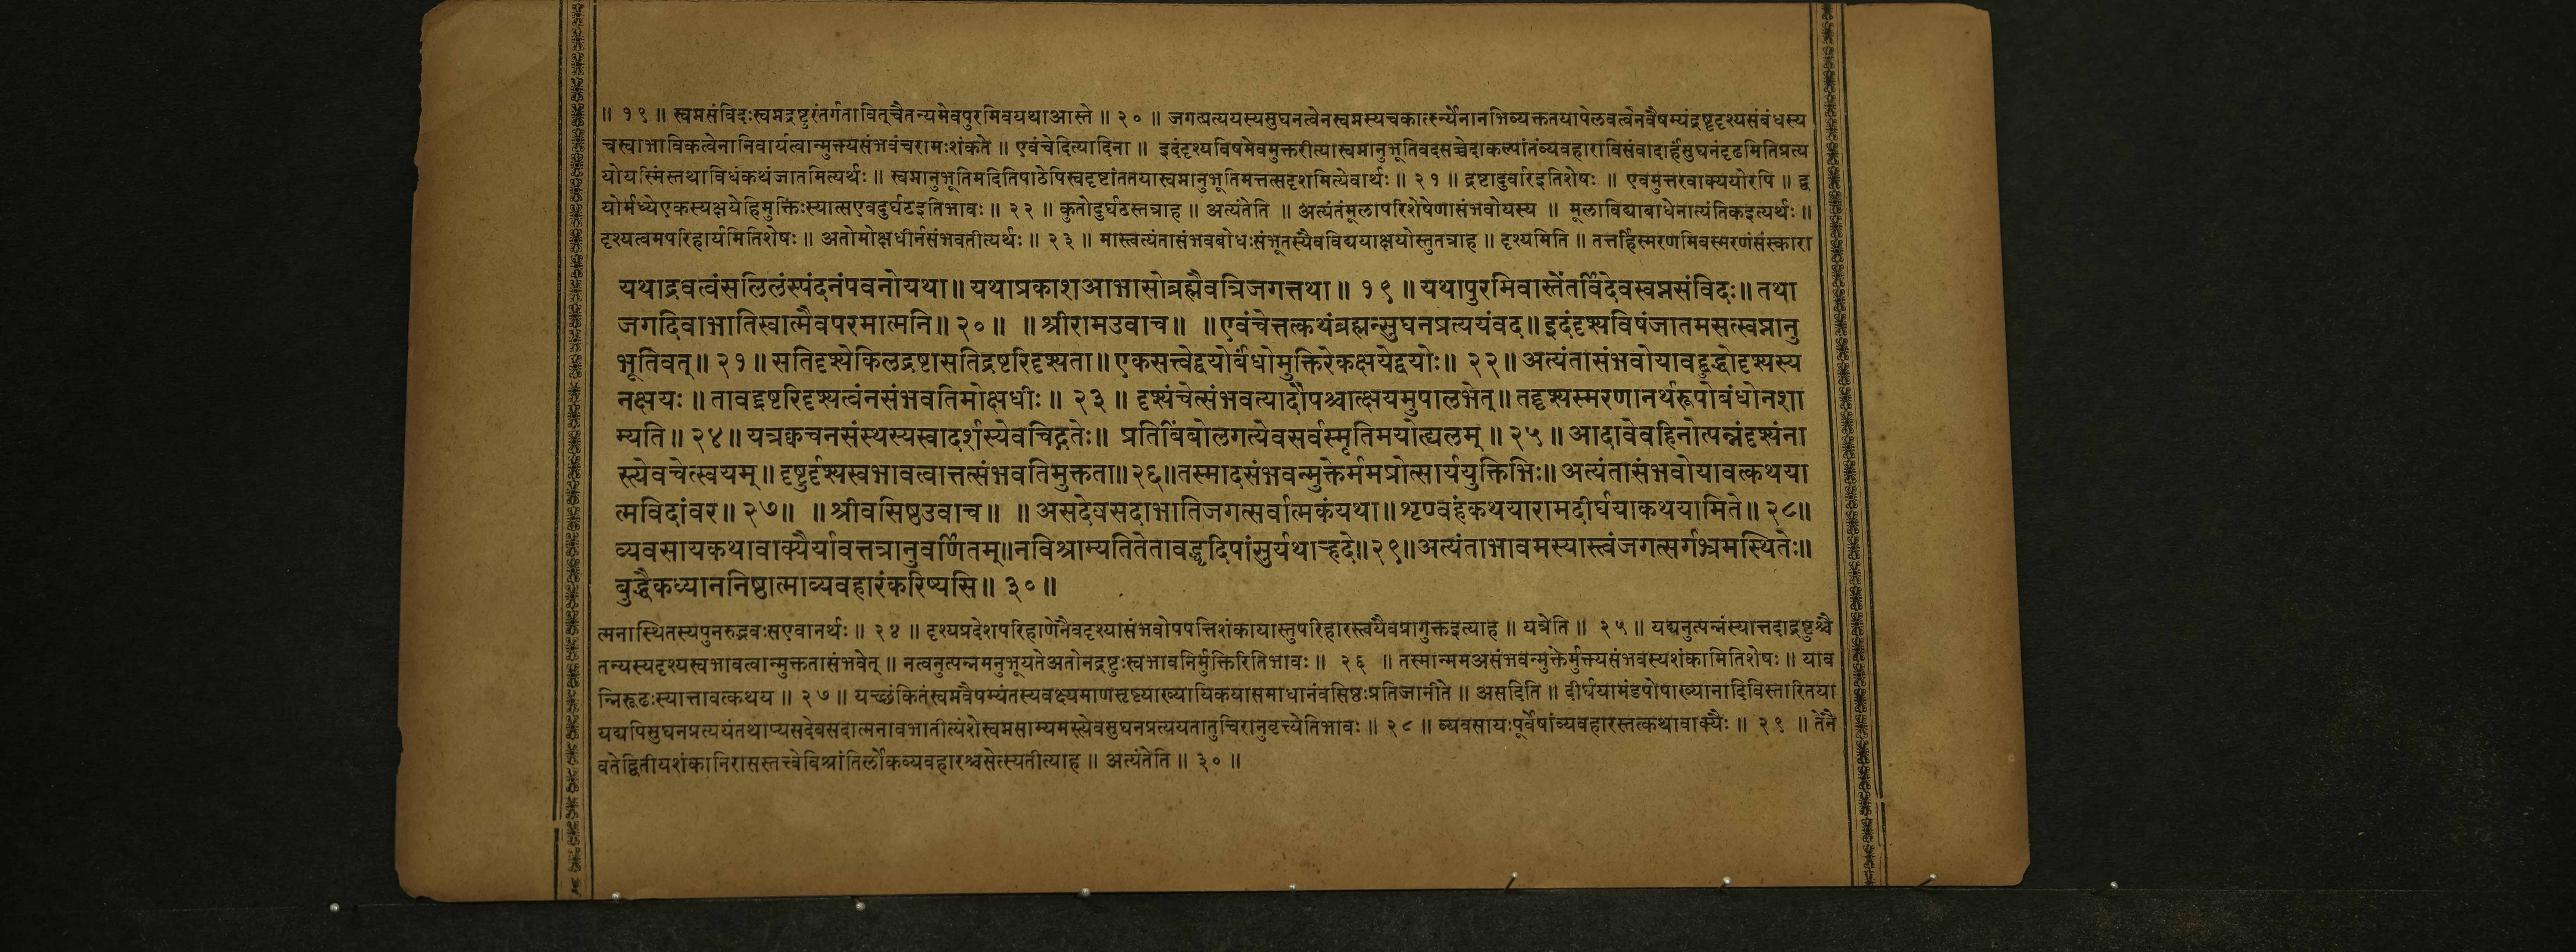 ॥ १९ ॥ स्वप्नसंविदःस्वप्नद्रष्टुरंतर्गतावित्चैतन्यमेवपुरमिवयथाआस्ते ॥ २० ॥ जगत्प्रत्ययस्यसुघनत्वेनस्वप्नस्यचकार्त्स्न्येनानभिव्यक्ततयापेलवत्वेनवैषम्यंद्रष्टृदृश्यसंबंधस्य
चस्वाभाविकत्वेनानिवार्यत्वान्मुक्त्यसंभवंचरामःशंकते ॥ एवंचेदित्यादिना ॥ इदंदृश्यविषमेवमुक्तरीत्यास्वप्नानुभूतिवदसच्चेदाकल्पांतंव्यवहाराविसंवादार्हंसुघनंदृढमितिप्रत्य
योयस्मिंस्तथाविधंकथंजातमित्यर्थः ॥ स्वप्नानुभूतिमदितिपाठेपिस्वदृष्टांततयास्वप्नानुभूतिमत्तत्सदृशमित्येवार्थः ॥ २१ ॥ द्रष्टादुर्वारइतिशेषः ॥ एवमुत्तरवाक्ययोरपि ॥ द्व
योर्मध्येएकस्यक्षयेहिमुक्तिःस्यात्सएवदुर्घटइतिभावः ॥ २२ ॥ कुतोदुर्घटस्तत्राह ॥ अत्यंतेति ॥ अत्यंतंमूलापरिशेषेणासंभवोयस्य ॥ मूलाविद्याबाधेनात्यंतिकइत्यर्थः ॥
दृश्यत्वमपरिहार्यमितिशेषः ॥ अतोमोक्षधीर्नसंभवतीत्यर्थः ॥ २३ ॥ मास्त्वत्यंतासंभवबोधःसंभूतस्यैवविद्ययाक्षयोस्तुतत्राह ॥ दृश्यमिति ॥ तत्तर्हिस्मरणमिवस्मरणंसंस्कारा
यथाद्रवत्वंसलिलंस्पंदनंपवनोयथा ॥ यथाप्रकाशआभासोब्रह्मैवत्रिजगत्तथा ॥ १९ ॥ यथापुरमिवास्तेंतर्विदेवस्वप्नसंविदः ॥ तथा
जगदिवाभातिस्वात्मैवपरमात्मनि ॥ २० ॥ ॥ श्रीरामउवाच ॥ ॥ एवंचेत्तत्कथंब्रह्मन्सुघनप्रत्ययंवद ॥ इदंदृश्यविषंजातमसत्स्वप्नानु
भूतिवत् ॥ २१ ॥ सतिदृश्येकिलद्रष्टासतिद्रष्टरिदृश्यता ॥ एकसत्त्वेद्वयोर्बंधोमुक्तिरेकक्षयेद्वयोः ॥ २२ ॥ अत्यंतासंभवोयावद्बुद्धोदृश्यस्य
नक्षयः ॥ तावद्द्रष्टरिदृश्यत्वंनसंभवतिमोक्षधीः ॥ २३ ॥ दृश्यंचेत्संभवत्यादौपश्चात्क्षयमुपालभेत् ॥ तद्दृश्यस्मरणानर्थरूपोबंधोनशा
म्यति ॥ २४ ॥ यत्रक्वचनसंस्थस्यस्वादर्शस्येवचिद्गतेः ॥ प्रतिबिंबोलगत्येवसर्वस्मृतिमयोत्द्यलम् ॥ २५ ॥ आदावेवहिनोत्पन्नंदृश्यंना
स्त्येवचेत्स्वयम् ॥ द्रष्टुर्दृश्यस्वभावत्वात्तत्संभवतिमुक्तता ॥ २६ ॥ तस्मादसंभवन्मुक्तेर्ममप्रोत्सार्ययुक्तिभिः ॥ अत्यंतासंभवोयावत्कथया
त्मविदांवर ॥ २७ ॥ ॥ श्रीवसिष्ठउवाच ॥ ॥ असदेवसदाभातिजगत्सर्वात्मकंयथा ॥ शृण्वहंकथयारामदीर्घयाकथयामिते ॥ २८ ॥
व्यवसायकथावाक्यैर्यावत्तत्रानुवर्णितम् ॥ नविश्राम्यतितेतावद्धृदिपांसुर्यथाऱ्हदे ॥ २९ ॥ अत्यंताभावमस्यास्त्वंजगत्सर्गभ्रमस्थितेः ॥
बुद्ध्वैकध्याननिष्ठात्माव्यवहारंकरिष्यसि ॥ ३० ॥
त्मनास्थितस्यपुनरुद्भवःसएवानर्थः ॥ २४ ॥ दृश्यप्रदेशपरिहाणेनैवदृश्यासंभवोपपत्तिशंकायास्तुपरिहारस्त्वयैवप्रागुक्तइत्याह ॥ यत्रेति ॥ २५ ॥ यद्यनुत्पन्नंस्यात्तदाद्रष्टुश्चै
तन्यस्यदृश्यस्वभावत्वान्मुक्ततासंभवेत् ॥ नत्वनुत्पन्नमनुभूयतेअतोनद्रष्टुःस्वभावनिर्मुक्तिरितिभावः ॥ २६ ॥ तस्मान्ममअसंभवन्मुक्तेर्मुक्त्यसंभवस्यशंकामितिशेषः ॥ याव
न्निरूढःस्यात्तावत्कथय ॥ २७ ॥ यच्छंकितंस्वप्नवैषम्यंतस्यवक्ष्यमाणसृष्ट्याख्यायिकयासमाधानंवसिष्ठःप्रतिजानीते ॥ असदिति ॥ दीर्घयामंडपोपाख्यानादिविस्तारितया
यद्यपिसुघनप्रत्ययंतथाप्यसदेवसदात्मनावभातीत्यंशेस्वप्नसाम्यमस्त्येवसुघनप्रत्ययतातुचिरानुवृत्त्येतिभावः ॥ २८ ॥ व्यवसायःपूर्वेषांव्यवहारस्तत्कथावाक्यैः ॥ २९ ॥ तेनै
वतेद्वितीयशंकानिरासस्तत्त्वेविश्रांतिर्लोकव्यवहारश्चसेत्स्यतीत्याह ॥ अत्यंतेति ॥ ३० ॥